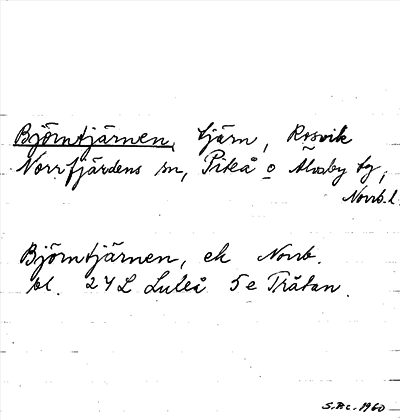 Björntjärnen, tjärn, Rosvik
Norrfjärdens sn, Piteå o Älvsby tg,
Norrb. l
Björntjärnen, ek Norrb.
bl. 24L Luleå 5e Tråtan.
1960